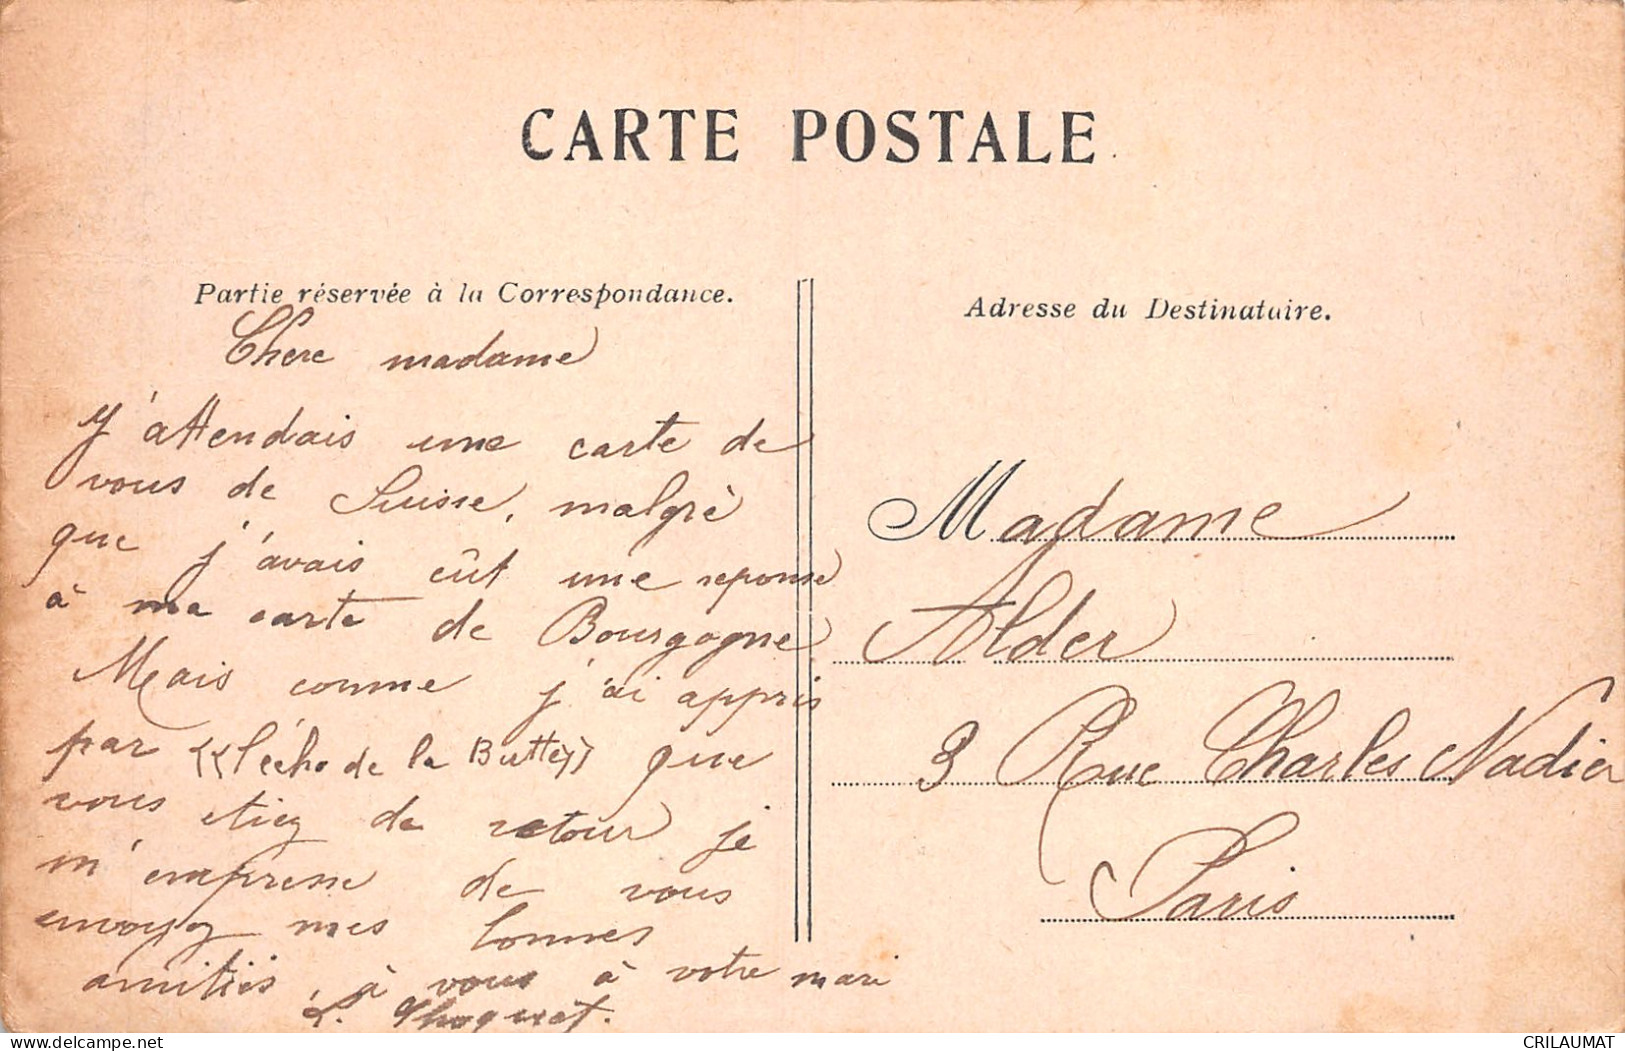 CARTE POSTALE
Partie réservée à la Correspondance.
Chere madame
J'attendais une carte de
vous de Suisse, malgrè
que j'avais eût une reponse
à ma carte de Bourgogne
Mais comme j'ai appris
par <<l'écho de la Butte>> que
vous etiez de retour je
m'empresse de vous
envoyez mes bonnes
amitiés à vous à votre mari
L.
Adresse du Destinataire.
Madame
Alder
3 Rue Charles Nadier
Paris
CRILAUMAT